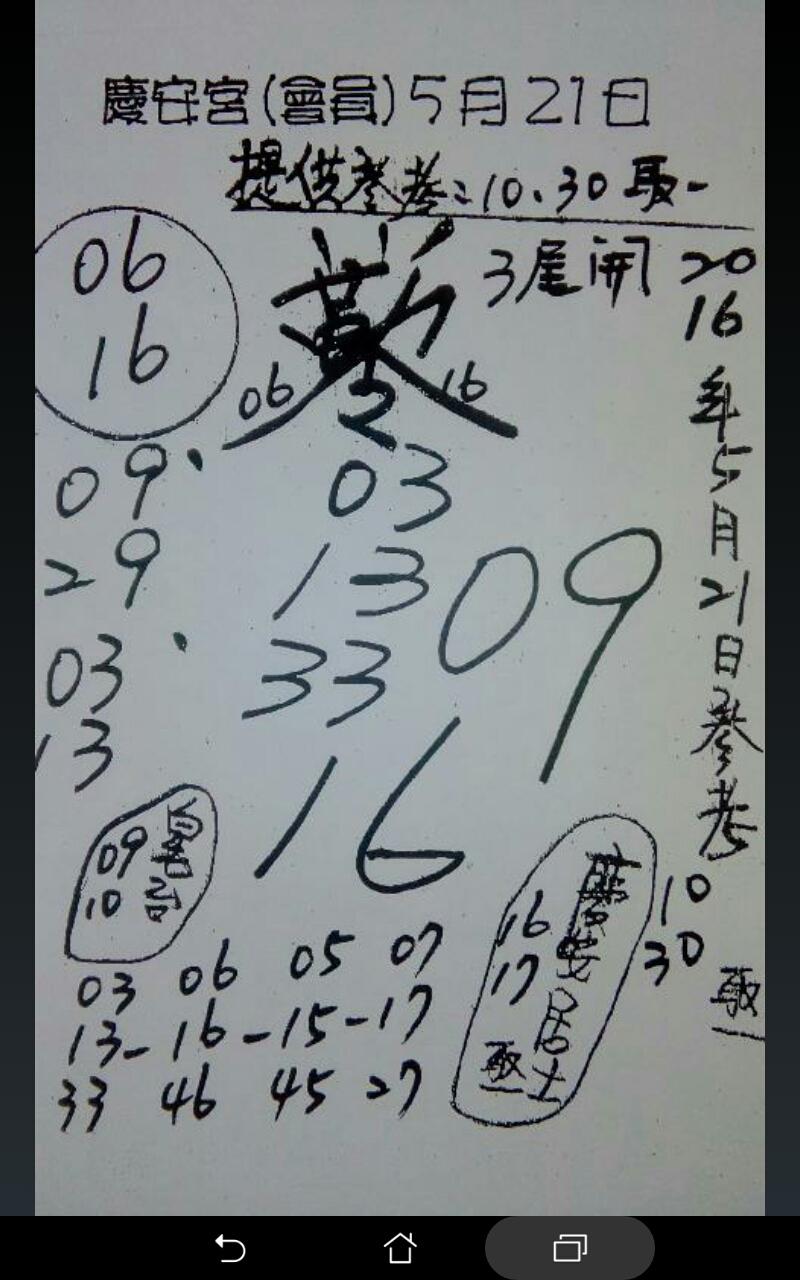 慶安宮(會員)5月21日
提供參考:10、30取一
3尾開
06
16
06
16
2016年5月21日參考
10
30
取一
09
29
03
13
03
13
33
09
16
09
10
16
17
慶安居士
取一
03 06 05 07
13-16-15-17
33 46 45 27